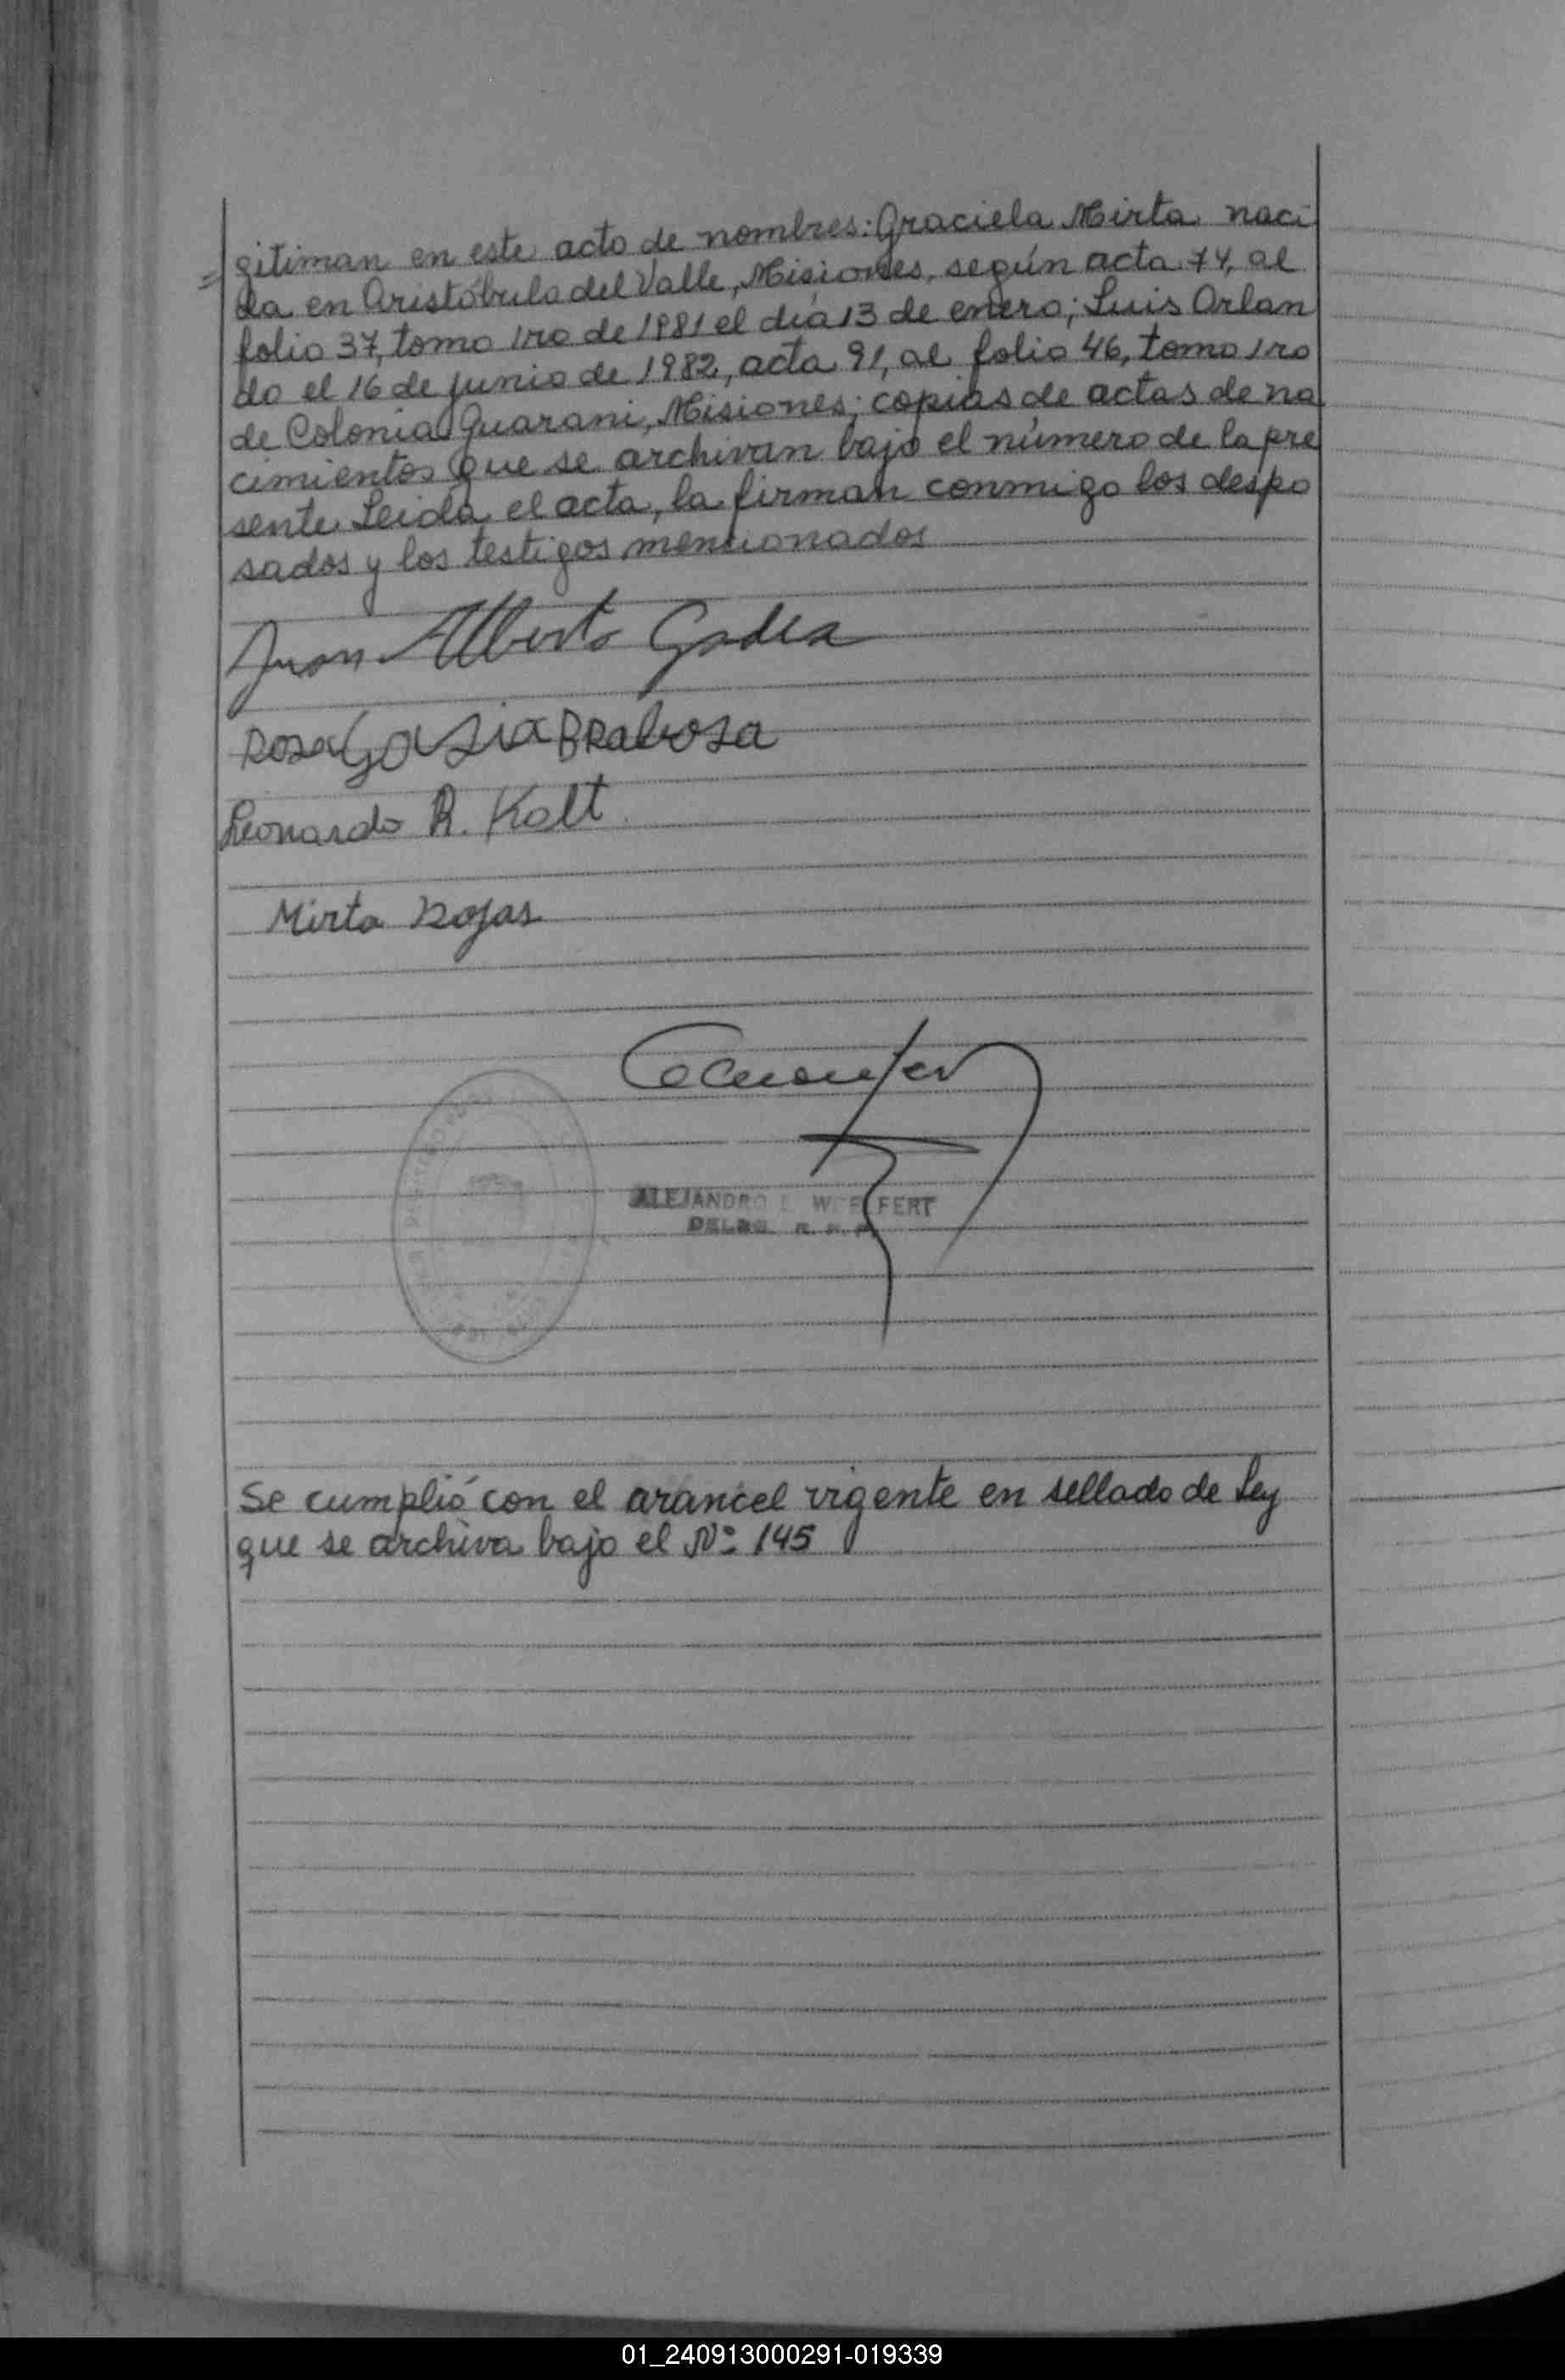 = gitiman en este acto de nombres: Graciela Mirta naci
da en Aristóbulo del Valle, Misiones, según acta 74, al
folio 37, tomo 1ro de 1981 el día 13 de enero; Luis Orlan
do el 16 de junio de 1982, acta 91, al folio 46, tomo 1ro
de Colonia Guarani, Misiones; copias de actas de na
cimientos que se archivan bajo el número de la pre
sente. Leída el acta, la firman conmigo los despo
sados y los testigos mencionados
Juan Alberto Godea
Rosa
Leonardo R. Kolt.
Mirta Rojas
ALEJANDRO
Se cumplió con el arancel vigente en sellado de Ley
que se archiva bajo el Nº 145
01_240913000291-019339